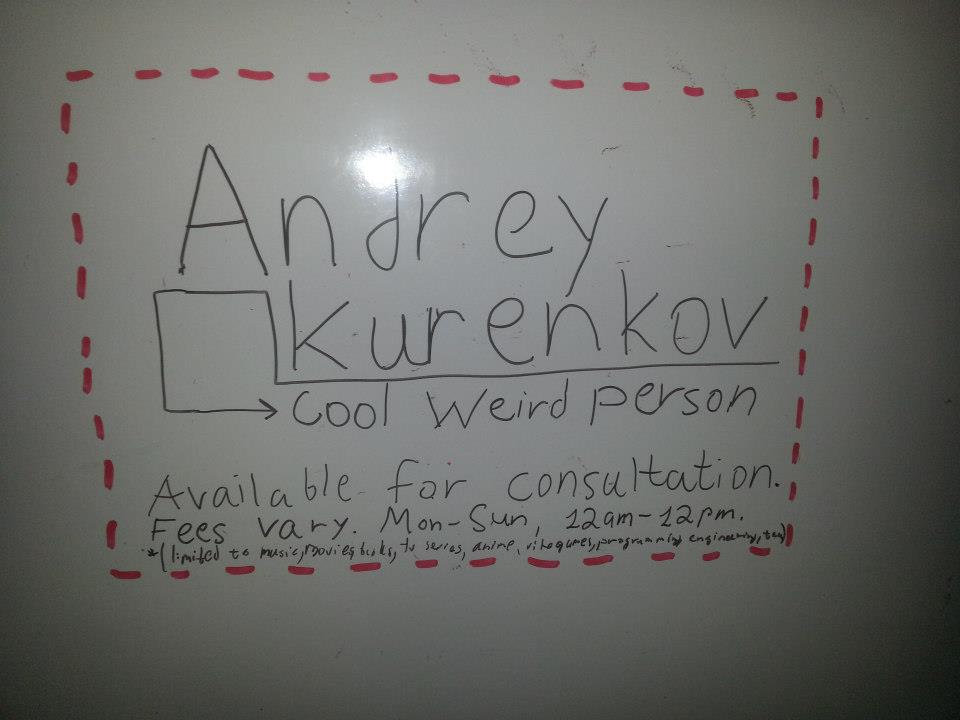 Andrey
Kurenkov
Cool Weird person
Available for consultation.
Fees vary. Mon-Sun, 12am-12pm.
*(limited to music, movies, books, tv series, anime, videogames, programming, engineering, tea)